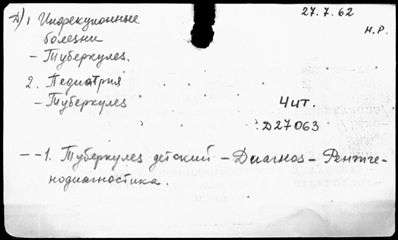 Д) 1 Инфекционные
27.7.62
болезни
Н.Р.
— Туберкулез.
2. Педиатрия
— Туберкулез
Чит.
Д27063
— — 1. Туберкулез детский — Диагноз — Рентге-
нодиагностика.